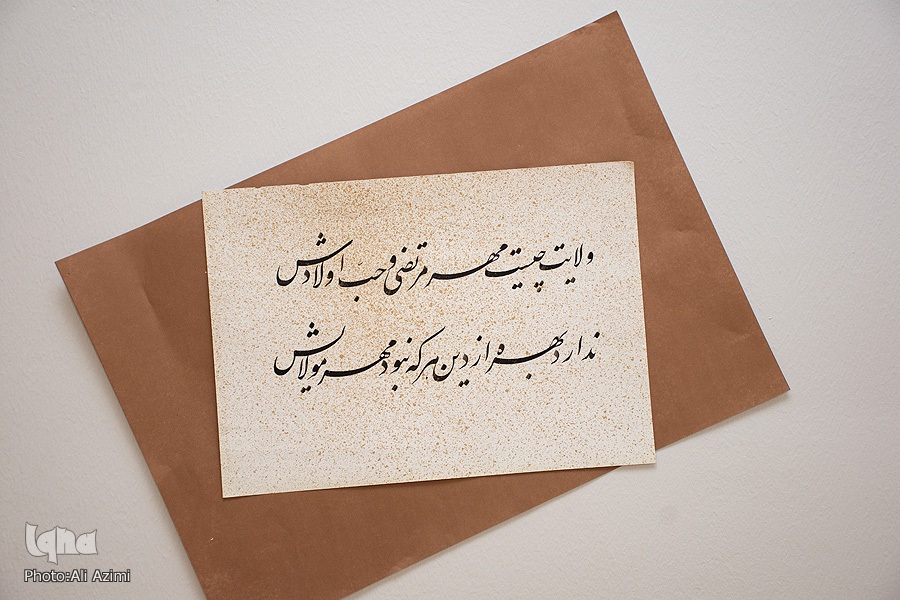 ولایت چیست مهر مرتضی و حبّ اولادش
ندارد بهره از دین هر که نبود مهر مولایش
Iqna
Photo:Ali Azimi